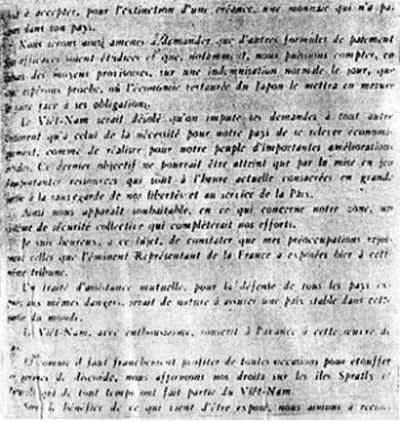 à accepter, pour l'extinction d'une créance, une monnaie qui n'a pas
dans son pays.
Nous serons ainsi amenés à demander que d'autres formules de paiement
efficaces soient étudiées et que, notamment, nous puissions compter, en
des moyens provisoires, sur une indemnisation normale le jour, que
espérons proche, où l'économie restaurée du Japon le mettra en mesure
faire face à ses obligations.
Le Viêt-Nam serait désolé qu'on impute ses demandes à tout autre
qu'à celui de la nécessité pour notre pays de se relever économi-
quement, comme de réaliser pour notre peuple d'importantes améliorations
Ce dernier objectif ne pourrait être atteint que par la mise en jeu
importantes ressources qui sont à l'heure actuelle consacrées en grande
à la sauvegarde de nos libertés et au service de la Paix.
Aussi nous apparaît souhaitable, en ce qui concerne notre zone, un
de sécurité collective qui compléterait nos efforts.
Je suis heureux, à ce sujet, de constater que mes préoccupations
celles que l'éminent Représentant de la France a exposées hier à cette
même tribune.
Un traité d'assistance mutuelle, pour la défense de tous les pays
aux mêmes dangers, serait de nature à assurer une paix stable dans cette
du monde.
Le Viêt-Nam, avec enthousiasme, souscrit à l'avance à cette œuvre de
Et comme il faut franchement profiter de toutes occasions pour étouffer
germes de discorde, nous affirmons nos droits sur les îles Spratly et
qui de tout temps ont fait partie du Viêt-Nam.
Sous le bénéfice de ce qui vient d'être exposé, nous aurions à